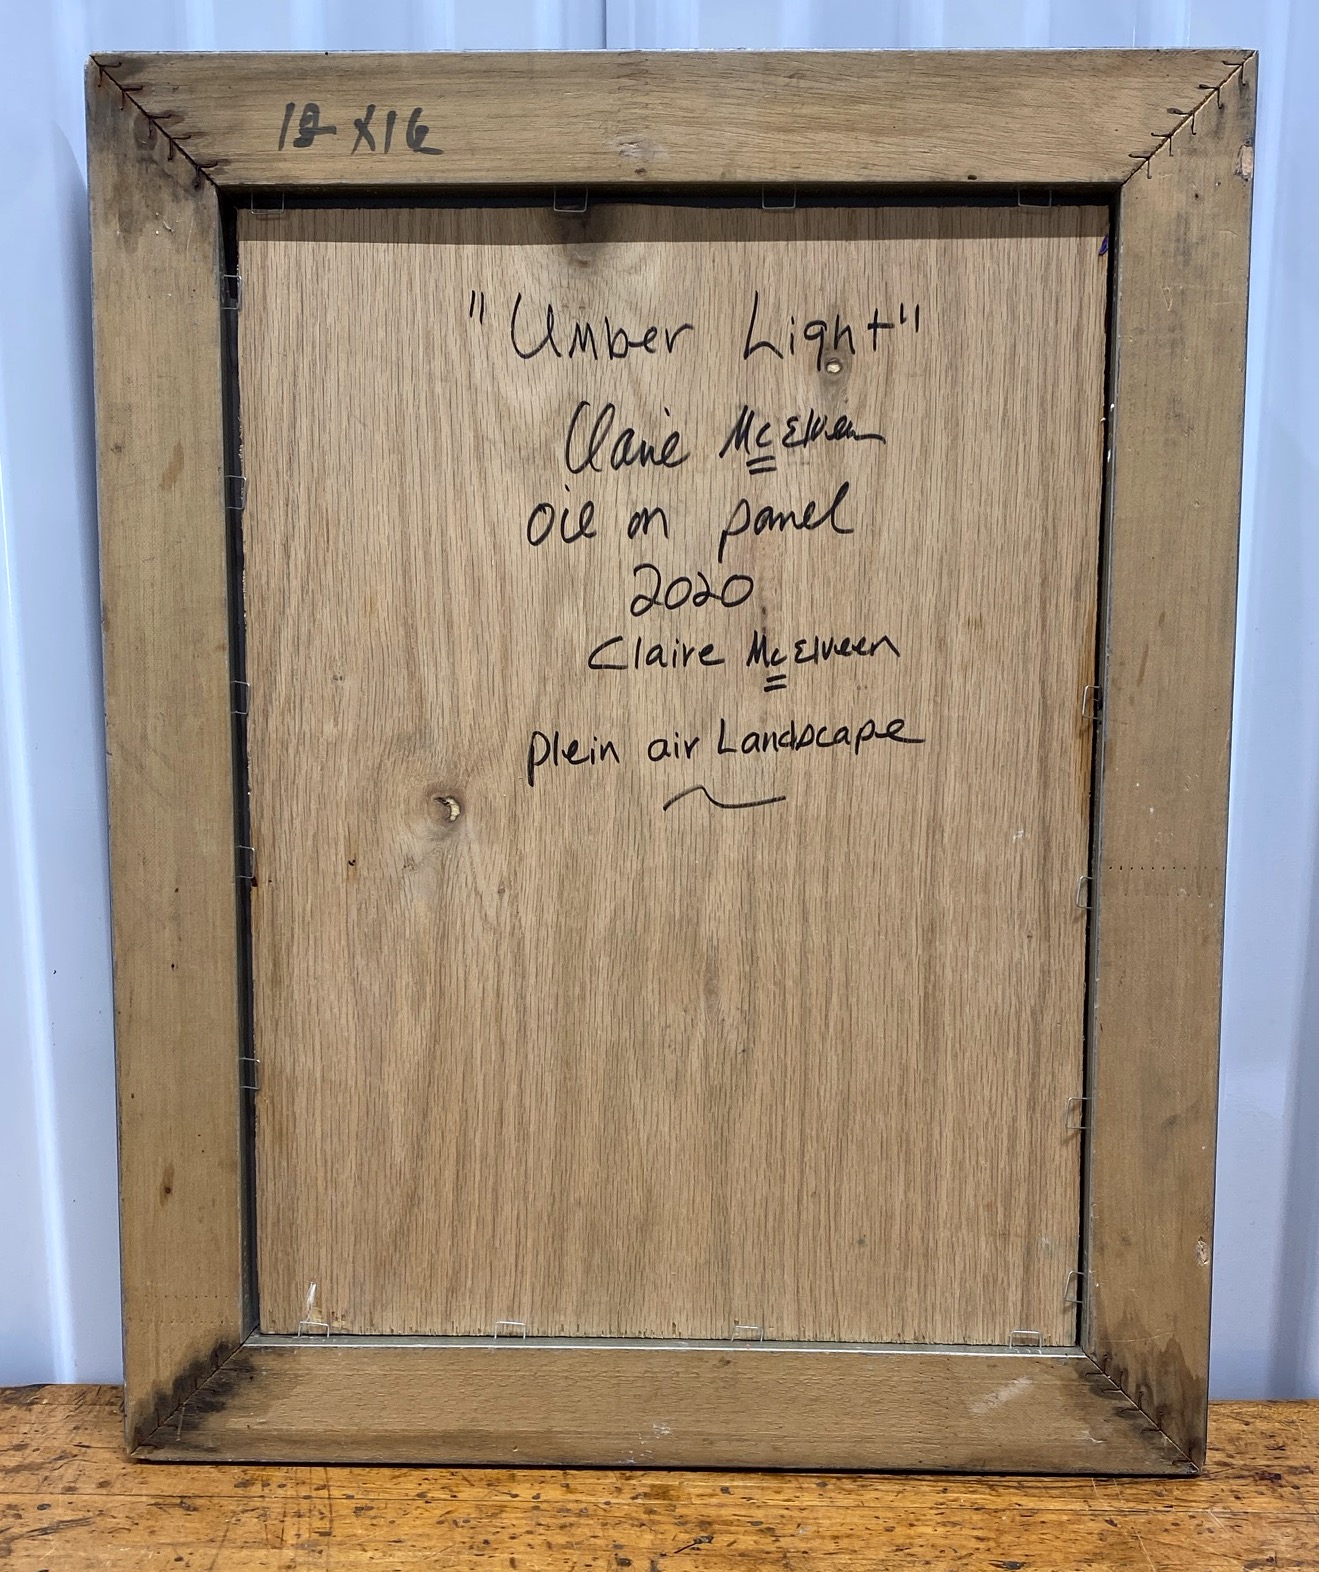 12 X16
"Umber Light"
Claire McElveen
oil on panel
2020
Claire McElveen
plein air Landscape